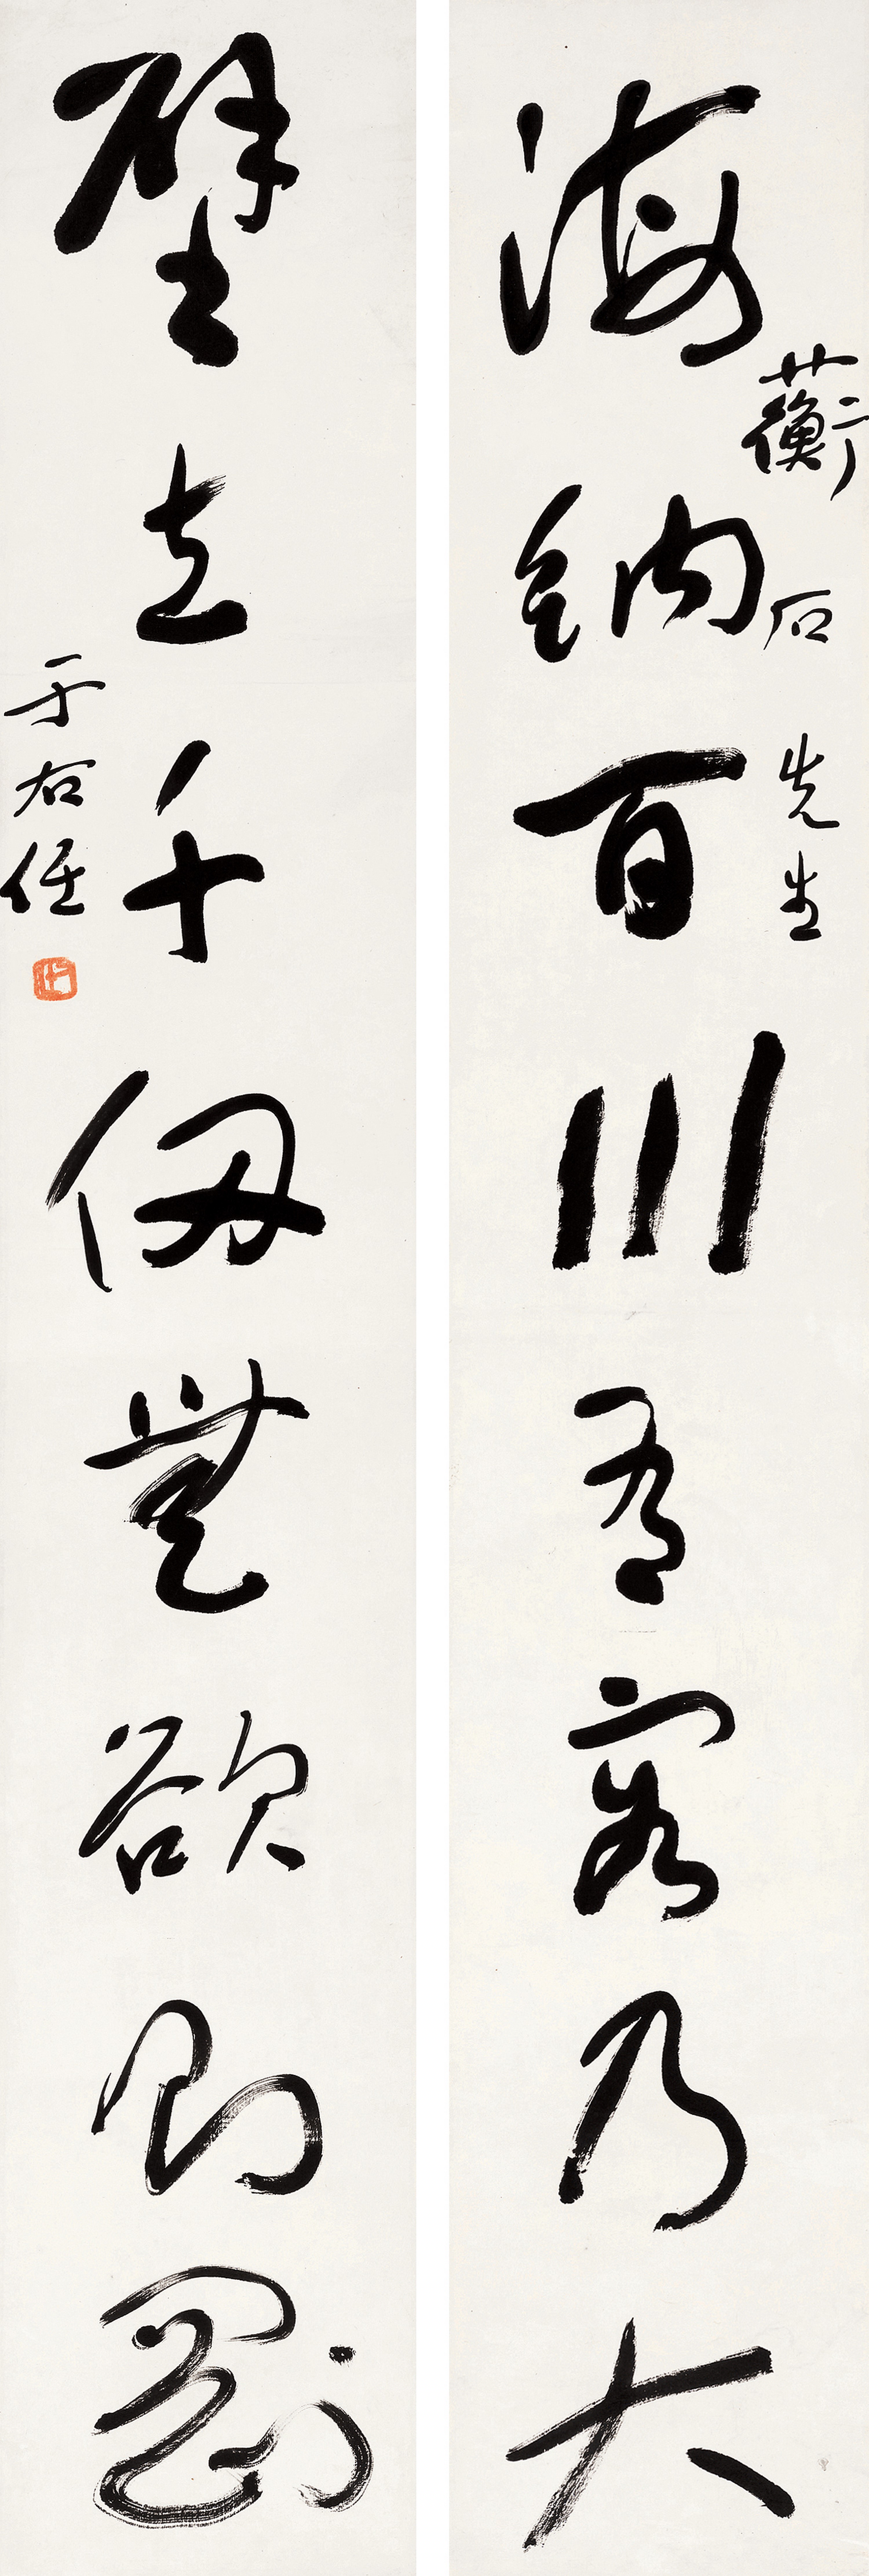 海納百川有容乃大
蘅石先生
壁立千仞無欲則剛
于右任